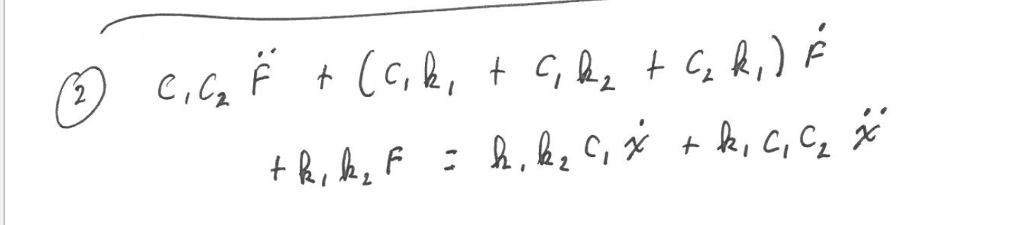 ② C₁C₂ F̈ + (C₁k₁ + C₁k₂ + C₂k₁) Ḟ
+ k₁k₂ F = k₁k₂ C₁ ẋ + k₁ C₁ C₂ ẍ